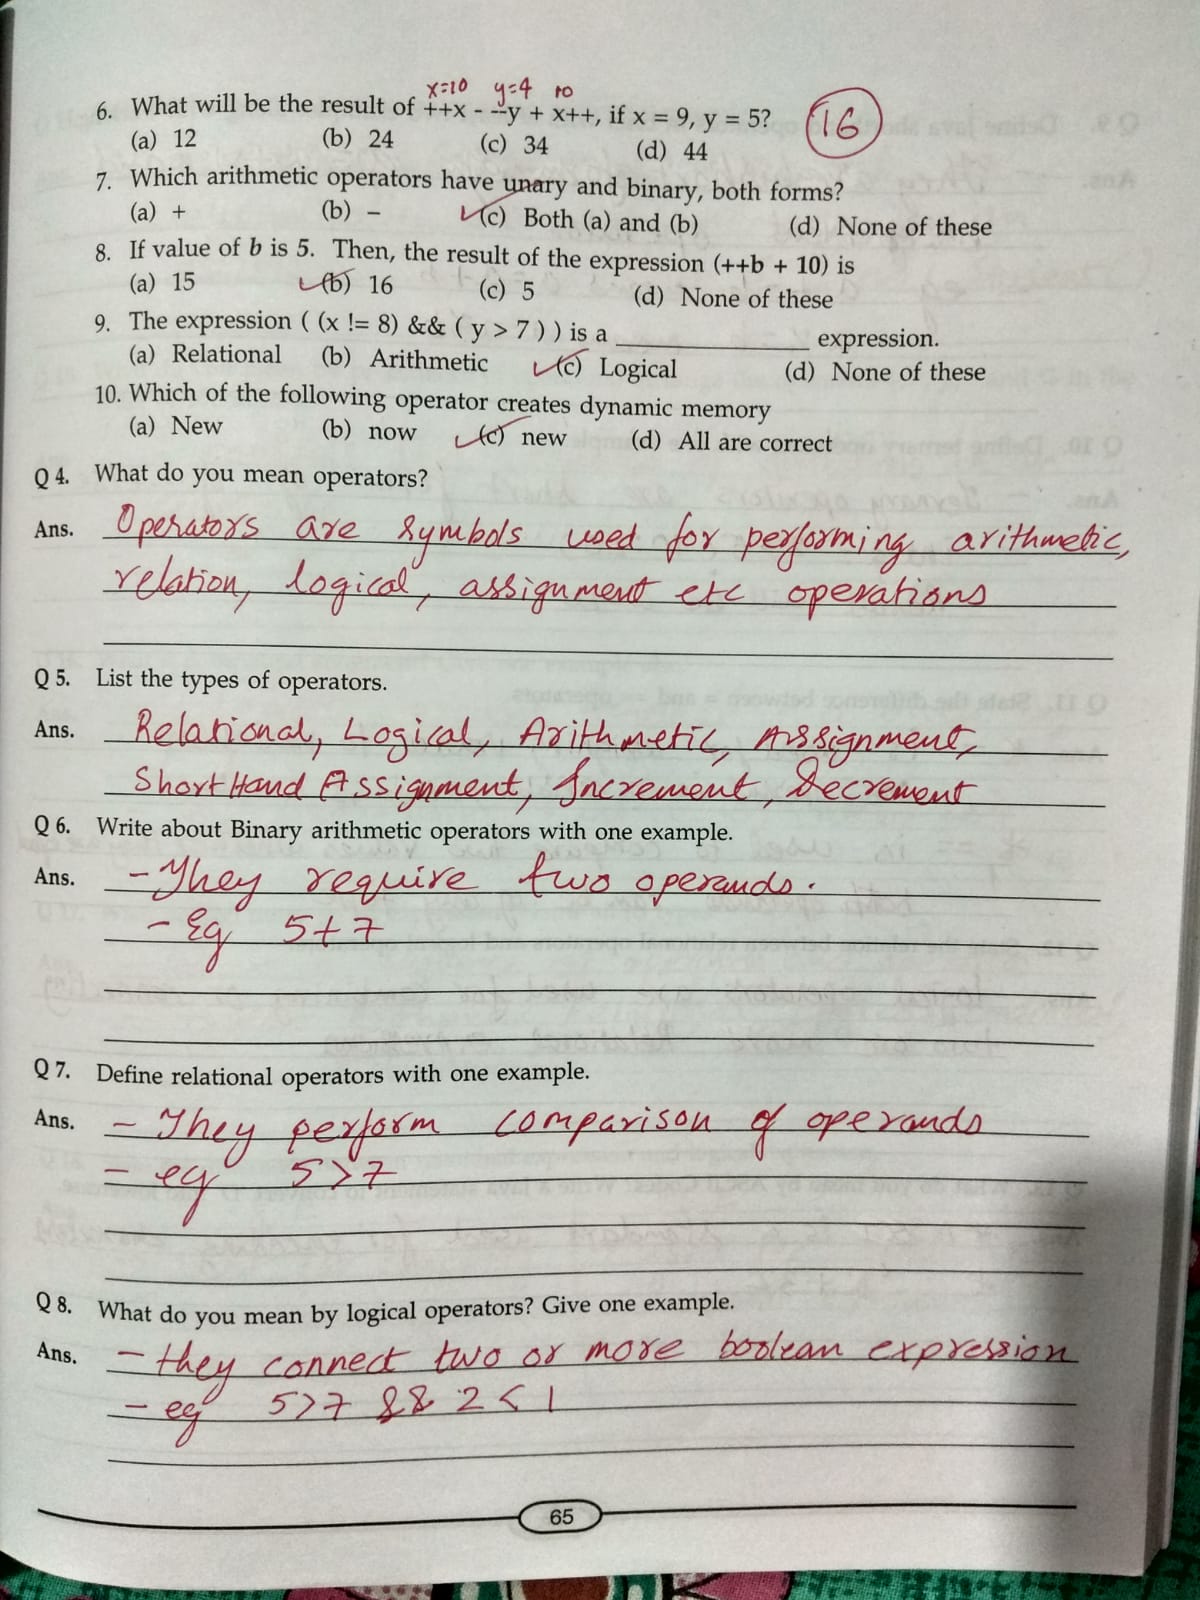 x=10 y=4 10
6. What will be the result of ++x - --y + x++, if x = 9, y = 5? 16
(a) 12 (b) 24 (c) 34 (d) 44
7. Which arithmetic operators have unary and binary, both forms?
(a) + (b) – (c) Both (a) and (b) (d) None of these
8. If value of b is 5. Then, the result of the expression (++b + 10) is
(a) 15 (b) 16 (c) 5 (d) None of these
9. The expression ( (x != 8) && ( y > 7 ) ) is a ________ expression.
(a) Relational (b) Arithmetic (c) Logical (d) None of these
10. Which of the following operator creates dynamic memory
(a) New (b) now (c) new (d) All are correct
Q 4. What do you mean operators?
Ans. Operators are symbols used for performing arithmetic,
relation, logical, assignment etc operations
Q 5. List the types of operators.
Ans. Relational, Logical, Arithmetic, Assignment,
Short Hand Assignment, Increment, Decrement
Q 6. Write about Binary arithmetic operators with one example.
Ans. - They require two operands.
- Eg 5+7
Q 7. Define relational operators with one example.
Ans. - They perform comparison of operands
- eg 5>7
Q 8. What do you mean by logical operators? Give one example.
Ans. - they connect two or more boolean expression
- eg 5>7 && 2<1
65